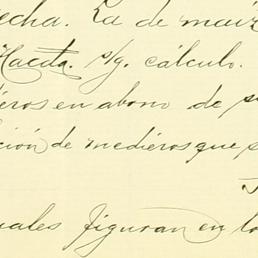 echa. La de maíz
Hacda. s/g. cálculo.
ieros en abono de s
ción de medieros que s
uales figuran en lo